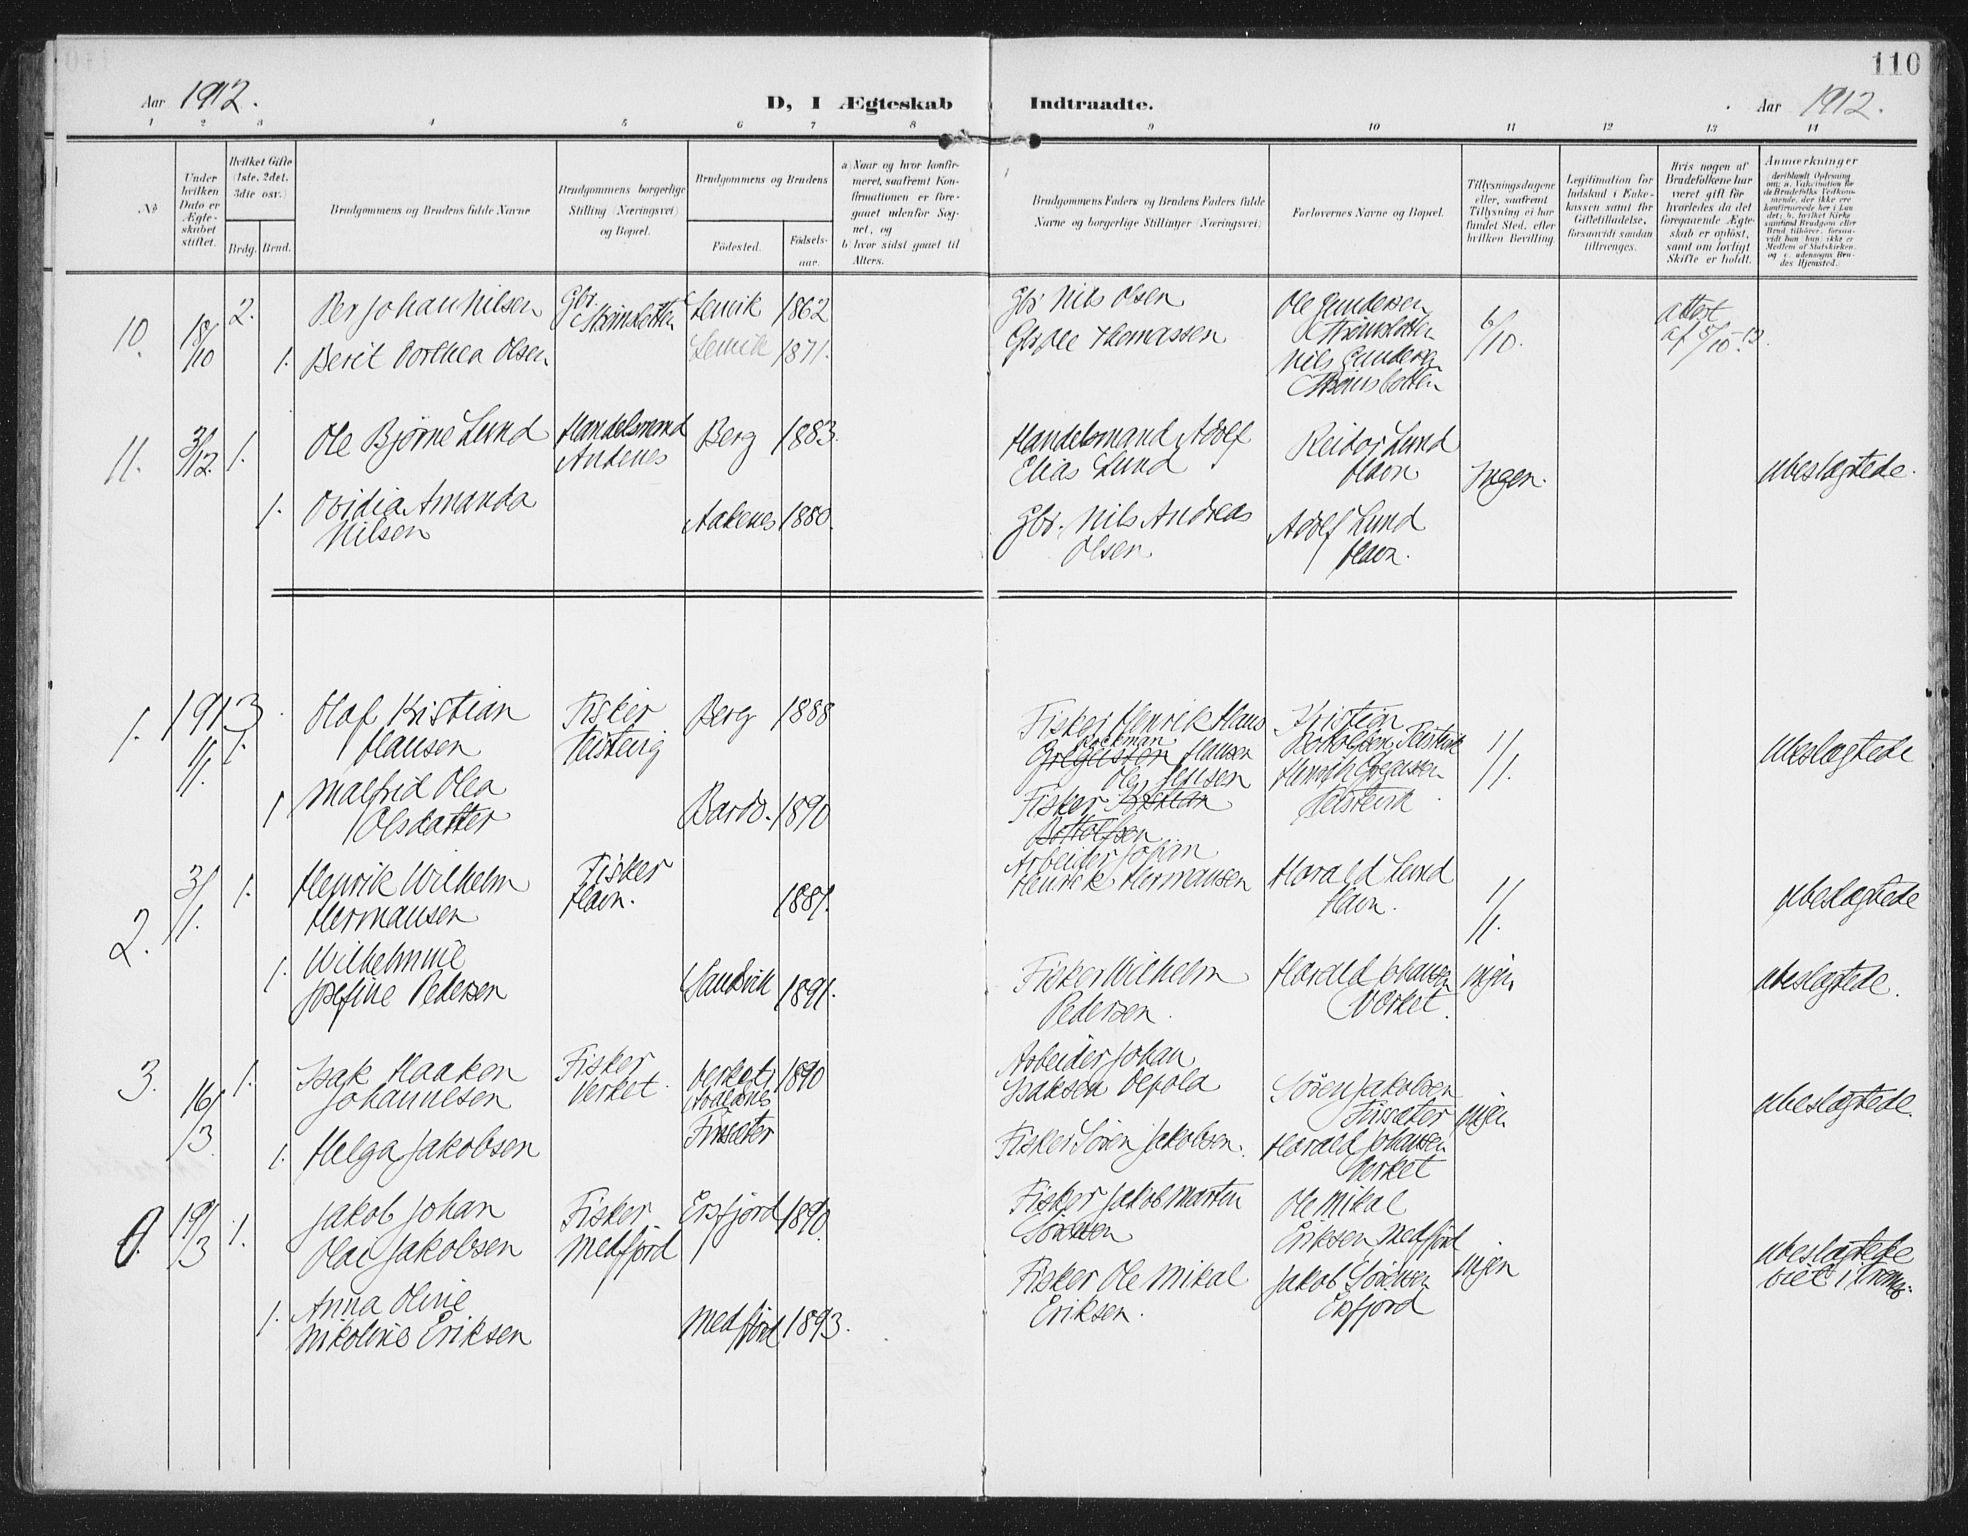 110
Aar 1912.
D, I Ægteskab Indtraadte.
Aar 1912.
1 2 3 4 5 6 7 8 9 10 11 12 13 14
No
Under hvilken Dato er Ægteskabet stiftet.
Hvilket Gifte (1ste, 2det, 3die osv.)
Brdg. Brud.
Brudgommens og Brudens fulde Navne
Brudgommens borgerlige Stilling (Næringsvei) og Bopæl.
Brudgommens og Brudens
Fødested. Fødsels-aar.
a) Naar og hvor konfirmeret, saafremt Konfirmationen er foregaaet udenfor Sognet, og
b) hvor sidst gaaet til Alters.
Brudgommens Faders og Brudens Faders fulde Navne og borgerlige Stillinger (Næringsvei)
Forlovernes Navne og Bopæl.
Tillysningsdagene eller, saafremt Tillysning ei har fundet Sted, efter hvilken Bevilling.
Legitimation for Indskud i Enkekassen samt for Giftetilladelse, forsaavidt saadan tiltrænges.
Hvis nogen af Brudefolkene har været gift før hvorledes da det foregaaende Ægteskab er opløst, samt om lovligt Skifte er holdt.
Anmærkninger
10. 18/10 2. Per Johan Nilsen Gbr. Lenvik 1862 Gbr Nils Olsen Ole Gundersen 6/10. attest af 5/10-13.
1. Berit Dorthea Olsen Lenvik 1871. Gbr Ole Thomassen Nils Gunders.
11. 31/12. 1. Ole Bjørne Lund Handelsmand Andenes Berg 1883. Handelsmand Adolf Elias Lund Reidar Lund Havn Ingen. ubeslægtede.
1. Ovidia Amanda Nilsen Aakenes 1880. Gbr. Nils Andreas Olsen Adolf Lund Havn.
1913
1. 1/1. 1. Olaf Kristian Hansen Fisker Berg 1888 Fisker Henrik Hans Hansen Kristian 1/1. Ubeslægtede
1 Malfrid Olea Olsdatter Bardo. 1890 Fisker Ole Jensen Henrik
2. 3/1. 1. Henrik Wilhelm Hermansen Fisker Havn. 1881. Arbeider Johan Henrik Hermansen Harald Lund Havn. 1/1. ubeslægtede
1. Wilhelmine Josefine Pedersen Sandvik 1891. Fisker Wilhelm Pedersen. Harald Johansen Værket. ingen ubeslægtede.
3. 16/3. 1. Isak Haaken Johannesen Fisker Verket. 1890 Arbeider Johan Isaksen Søren Jakobsen Finsæter ingen ubeslægtede.
1. Helga Jakobsen Finsæter Fisker Sören Jakobsen. Harald Johansen Verket
19/3 1. Jakob Johan Olai Jakobsen Fisker Medfjord Ersfjord 1890. Fisker Jakob Marten Sörensen Ole Mikal Eriksen Medfjord ingen ubeslægtede viet i Troms.
1. Anna Oline Nikoline Eriksen Medfjord 1893. Fisker Ole Mikal Eriksen. Jakob Sörensen Ersfjord